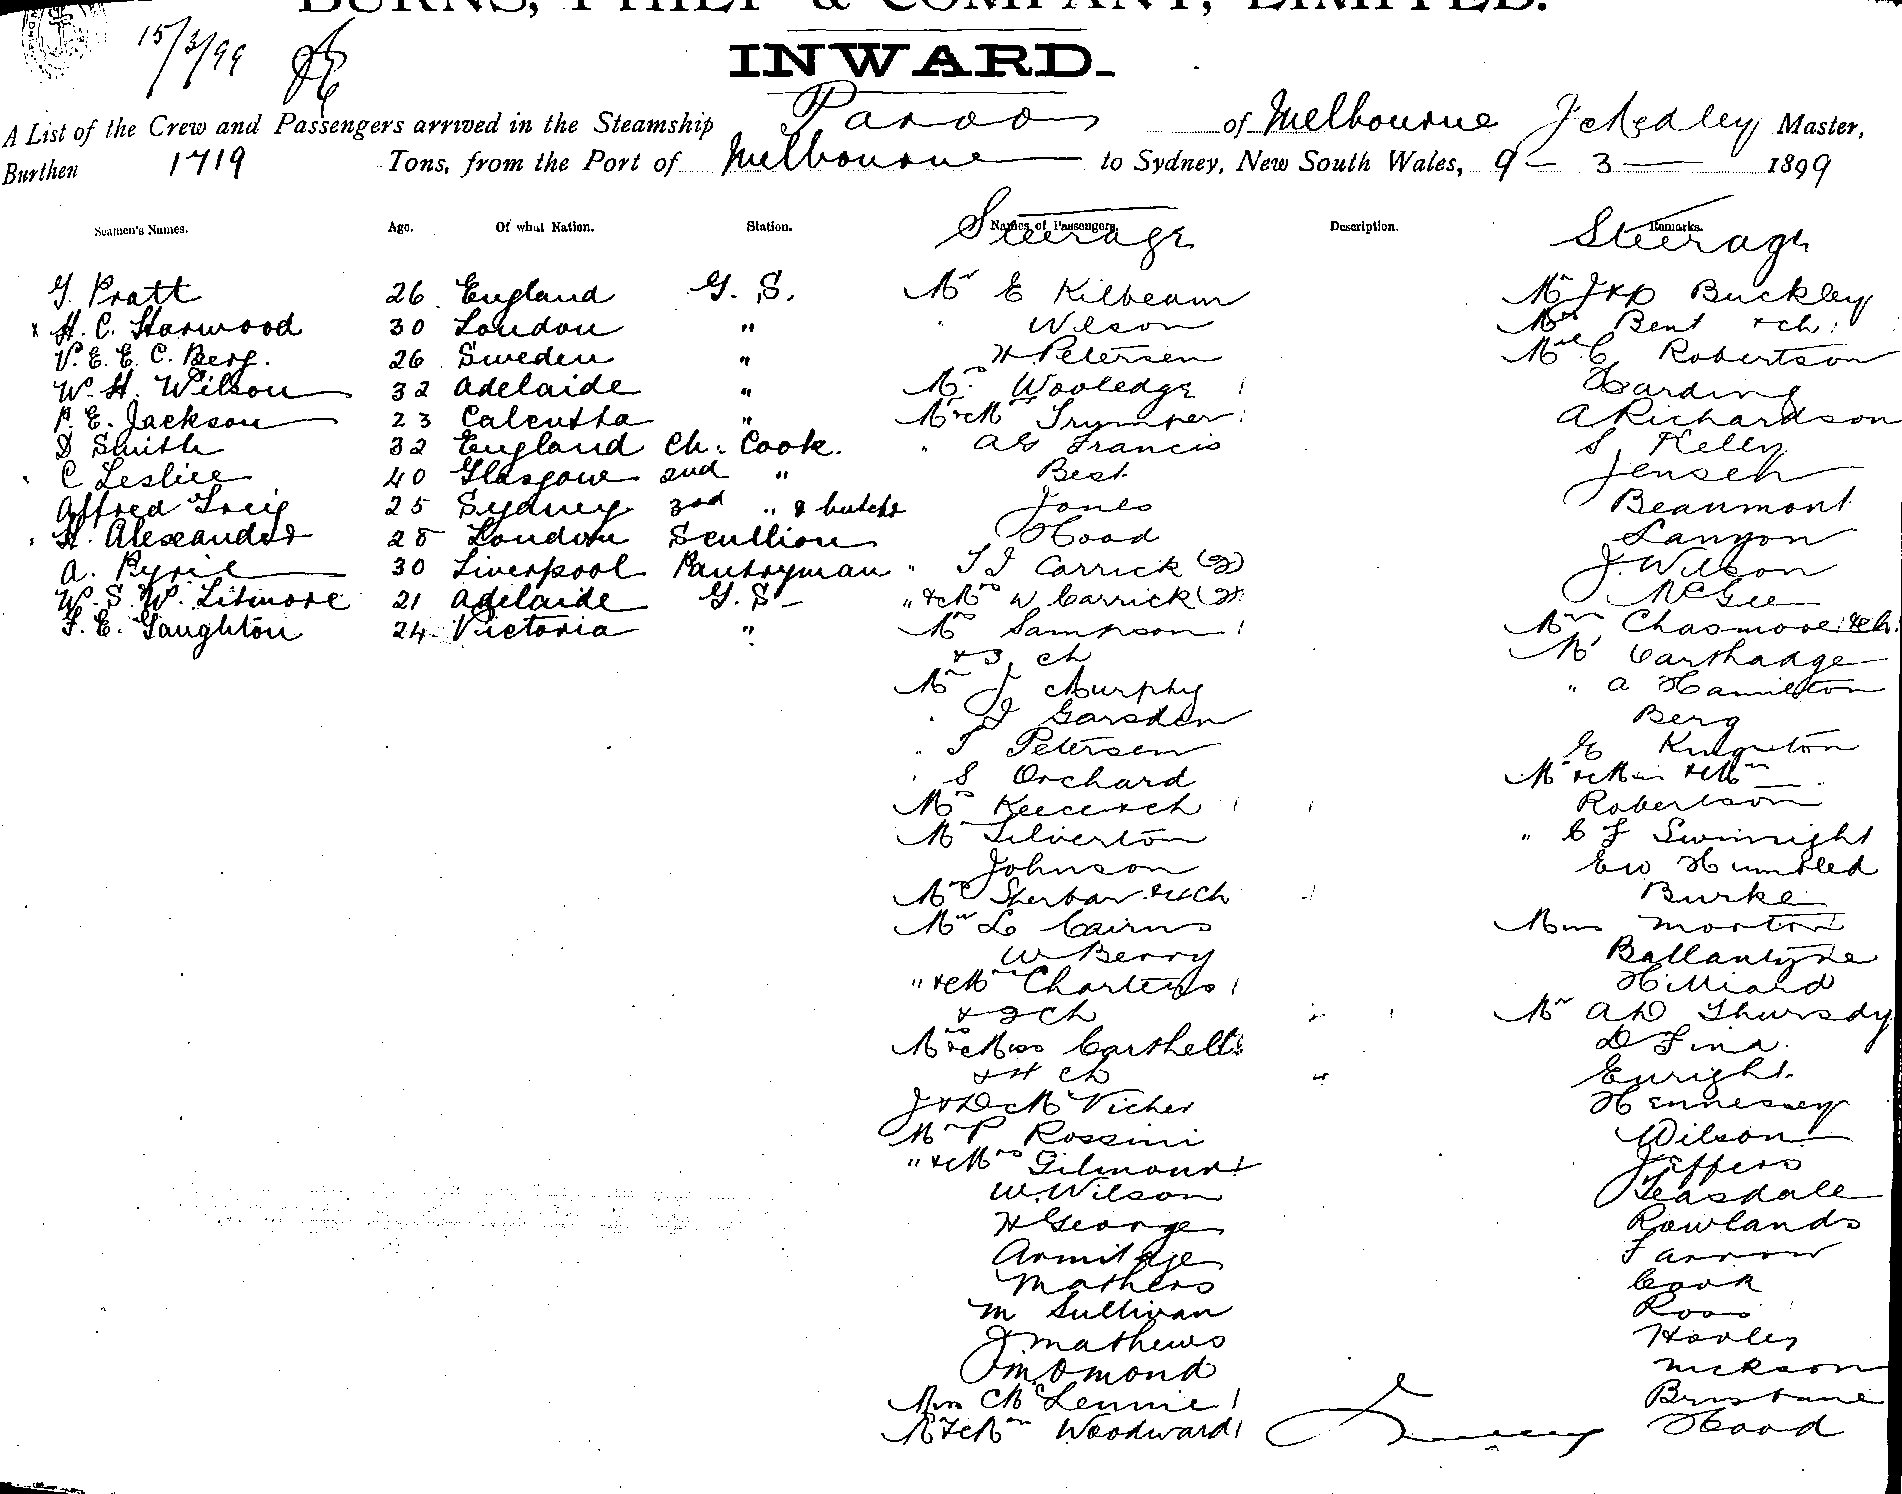 BURNS, PHILP & COMPANY, LIMITED.
15/3/99
INWARD.
A List of the Crew and Passengers arrived in the Steamship Paroo of Melbourne J McEdley Master,
Burthen 1719 Tons, from the Port of Melbourne to Sydney, New South Wales, 9 - 3 - 1899
Seamen's Names. Age. Of what Nation. Station. Names of Passengers. Description. Remarks.
Steerage Steerage
G. Pratt 26 England G. S. Mr E Kilbeam Mr J & P Buckley
H. C. Starwood 30 London " Wilson Mrs Bent & ch:
V. E. E. C. Berg. 26 Sweden " H Petersen C Robertson
W. H. Wilson 32 Adelaide " Mrs Wooledge Harding
P. E. Jackson 23 Calcutta " Mr & Mrs Trumper A Richardson
D Smith 32 England Ch. Cook. " A G Francis S Kelly
C Leslie 40 Glasgow 2nd " Best Jensen
Alfred Greig 25 Sydney 3rd " & butcher Jones Beaumont
H. Alexander 28 London Scullion Hood Lanyon
A. Pyrie 30 Liverpool Pantryman " T J Carrick (2) J. Wilson
W. S. W. Litmore 21 Adelaide G. S - " & Mrs W Carrick McGee
F. E. Gaughton 24 Victoria " Mrs Sampson Mrs Chasmore & ch:
& 3 ch Mr Carthadge
Mr J Murphy " A Hamilton
" J Garsden Berg
" T Petersen E Kingston
" S Orchard Mr & Miss & Mrs
Mrs Keece & ch Robertson
Mr Silverton " C F Swinnight
Johnson E W Humbled
Mrs Sherbar & ch Burke
Mr L Cairns Miss Morton
W Berry Ballantyne
" & Mrs Charters Hilliard
& 2 ch Mr A D Thursdy
Mrs & Miss Carthell D Fina
& 4 ch Enright
J & D McVicher Hennessey
Mr P Rossini Wilson
" & Mrs Gilmour Jeffers
W. Wilson Teasdale
H George Rowlands
Armitage Farrow
Mathers Cook
M Sullivan Ross
J Mathews Hooley
J M Omond Nickson
Miss McLennie Brisbane
Mr & Mrs Woodward Hood